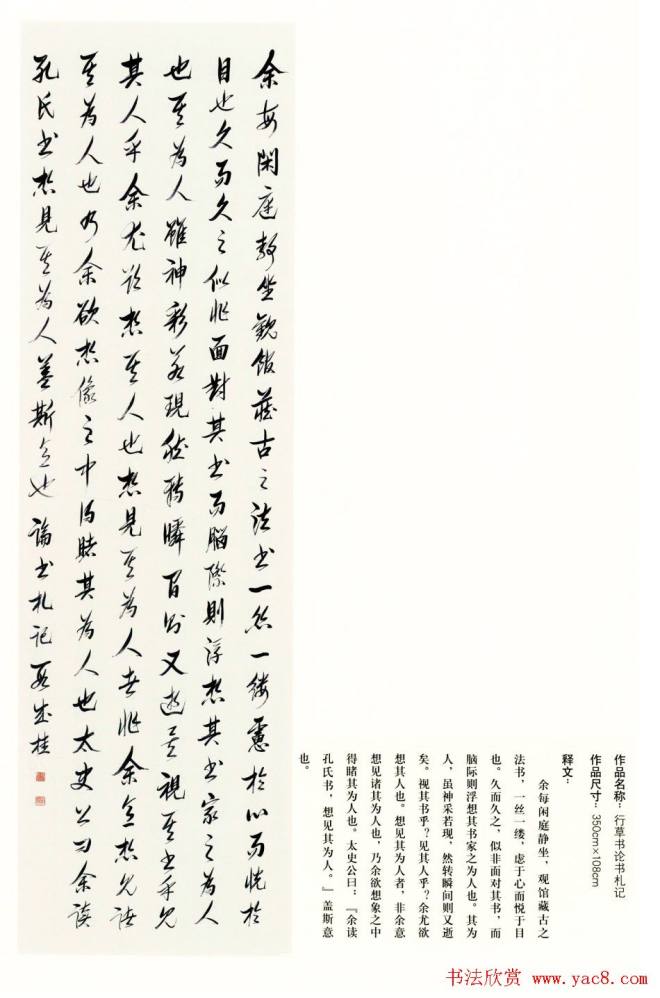 余每闲庭静坐观馆藏古之法书一丝一缕虑于心而悦于
目也久而久之似非面對其书而脳際則浮想其书家之為人
也其為人雖神彩若現然轉瞬间則又逝矣視其书乎見
其人乎余尤欲想其人也想見其為人者非余意想見诸
其為人也乃余欲想像之中得睹其為人也太史公曰余读
孔氏书想見其為人盖斯意也論书札记
作品名称：行草书论书札记
作品尺寸：350cm×108cm
释文：
余每闲庭静坐，观馆藏古之
法书，一丝一缕，虑于心而悦于目
也。久而久之，似非面对其书，而
脑际则浮想其书家之为人也。其为
人，虽神采若现，然转瞬间则又逝
矣。视其书乎？见其人乎？余尤欲
想其人也。想见其为人者，非余意
想见诸其为人也，乃余欲想象之中
得睹其为人也。太史公曰：『余读
孔氏书，想见其为人。』盖斯意
也。
书法欣赏 www.yac8.com